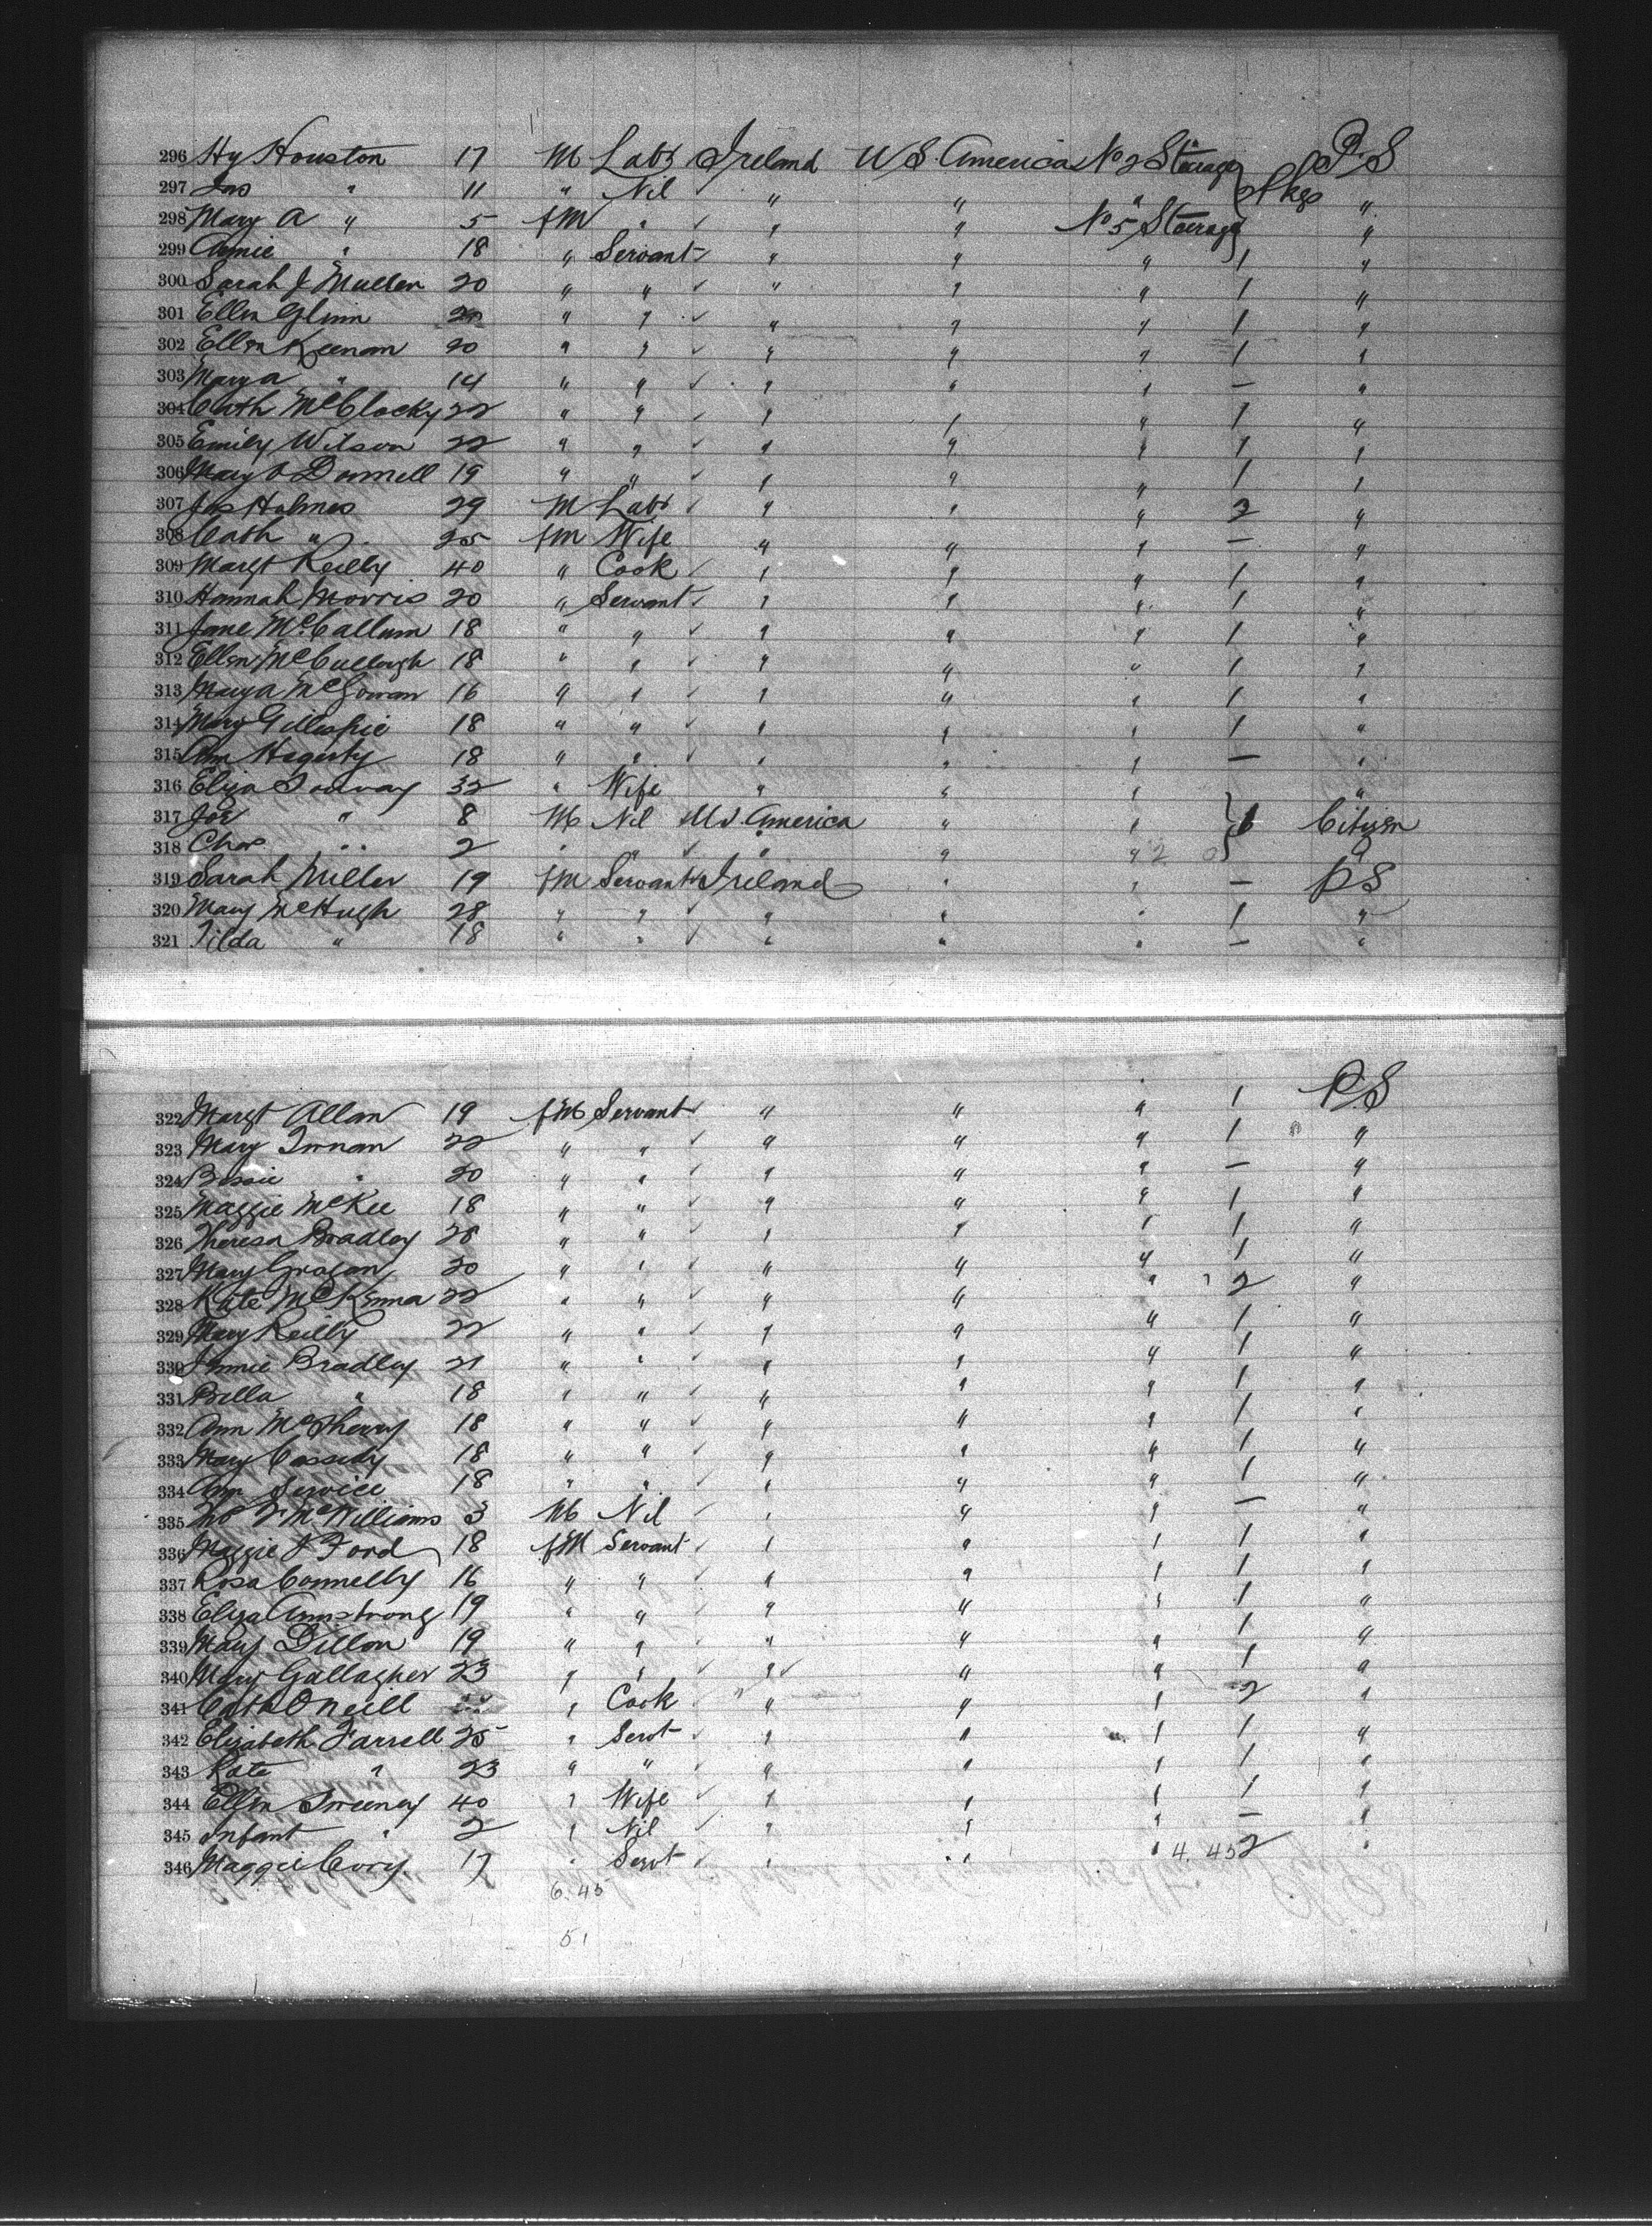 296 Hy Houston 17 M Labr Ireland U S. America No 2 Steerage } Pkgs P. S
297 Jas " 11 " Nil " " " "
298 Mary A " 5 fM " " " No 5 Steerage "
299 Annie " 18 " Servant " " " 1 "
300 Sarah J Mullen 20 " " " " " 1 "
301 Ellen Glinn " " " " " 1 "
302 Ellen Keenan 20 " " " " " 1 "
303 Mary A " 14 " " " " " — "
304 Cath McClocky 22 " " " " " 1 "
305 Emily Wilson 22 " " " " " 1 "
306 Mary O Donnell 19 " " " " " 1 "
307 Jas Holmes 29 M Labr " " " 2 "
308 Cath " 25 fM Wife " " " — "
309 Margt Reilly 40 " Cook " " " 1 "
310 Hannah Morris 20 " Servant " " " 1 "
311 Jane McCallum 18 " " " " " 1 "
312 Ellen McCullough 18 " " " " " 1 "
313 Mary A McGowan 16 " " " " " 1 "
314 Mary Gillespie 18 " " " " " 1 "
315 Ann Hegerty 18 " " " " " — "
316 Eliza 32 " Wife " " " "
317 Joe " 8 M Nil U S. America " " } Citizen
318 Chas " 2 " " " " " "
319 Sarah Miller 19 fM Servant Ireland " " — P S
320 Mary McHugh 28 " " " " " 1 "
321 Tilda " 18 " " " " " — "
322 Margt Allan 19 fM Servant " " " 1 P. S
323 Mary 22 " " " " " 1 "
324 Bessie " 20 " " " " " — "
325 Maggie McKee 18 " " " " " 1 "
326 Theresa Bradley 28 " " " " " 1 "
327 Mary Grogan 20 " " " " " 1 "
328 Kate McKenna 22 " " " " " 2 "
329 Mary Reilly 22 " " " " " 1 "
330 Annie Bradley 21 " " " " " 1 "
331 Bella " 18 " " " " " 1 "
332 Ann McSherry 18 " " " " " 1 "
333 Mary Cassidy 18 " " " " " 1 "
334 Ann Service 18 " " " " " 1 "
335 McWilliams 3 M Nil " " " — "
336 Maggie J Ford 18 fM Servant " " " 1 "
337 Rosa Connelly 16 " " " " " 1 "
338 Eliza Armstrong 19 " " " " " 1 "
339 Mary Dillon 19 " " " " " 1 "
340 Mary Gallagher 23 " " " " " 1 "
341 Cath O Neill " Cook " " " 2 "
342 Elizabeth Farrell 25 " Servt " " " 1 "
343 Kate " 23 " " " " " 1 "
344 Ellen Sweeney 40 " Wife " " " 1 "
345 Infant " 2 " Nil " " " — "
346 Maggie Cory 17 " Servt " " " 4. 45 2 "
6. 45
51